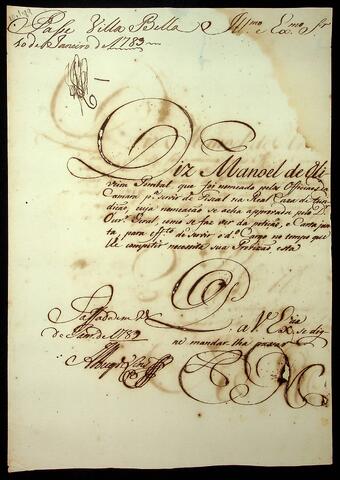 Passe Villa Bella Ill.mo e Ex.mo Sr
10 de Janeiro de 1783
Diz Manoel de Oli
veira Pombal, que foi nomeado pelos Officiaes
p.a servir de Fiscal na Real Caza da fun
dição, cuja nomeação se acha approvada pelo D.
Ouv.or Geral, como se faz ver da petição, e Carta jun
ta, para eff.to de servir o d.o Cargo no tempo que
lhe competir necessita sua Provizão, esta
P.
a V. Ex.cia se dig
ne mandar lha passar
Passada em
de Jan.ro de 1783
E R M